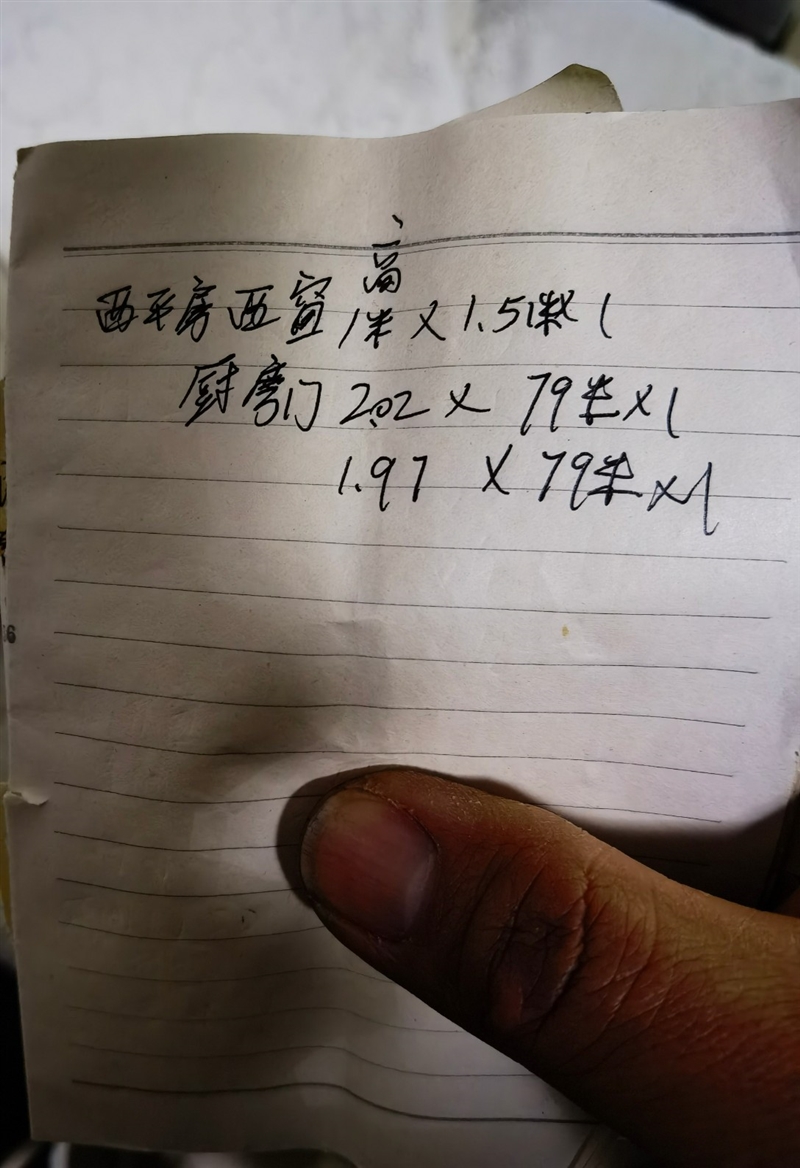 高
西平房西窗1米×1.51米×1
厨房门2.02×79米×1
1.97×79米×1